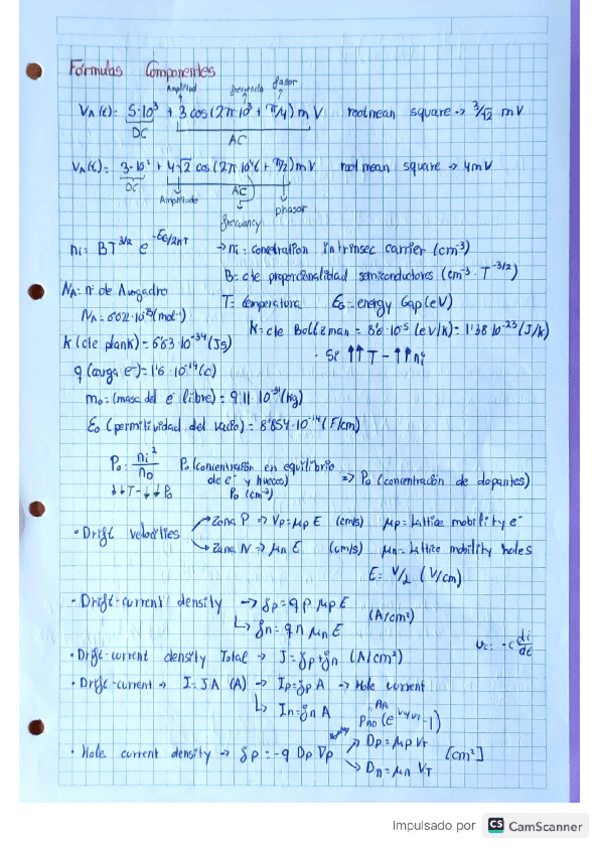 Fórmulas Componentes
Amplitud frecuencia fasor
VA(t)= 5·10³ + 3 cos(2π 10³ + π/4) mV root mean square -> 3/√2 mV
DC AC
VA(t)= 3·10¹ + 4√2 cos (2π 10⁴t + π/2) mV root mean square -> 4mV
DC AC
Amplitude phasor
frecuency
ni = BT^3/2 e^-EG/2kT -> ni = concentration intrinsec carrier (cm⁻³)
B= cte proporcionalidad semiconductores (cm⁻³· T^-3/2)
NA= nº de Avogadro T= temperatura EG= energy Gap (eV)
NA= 6'022·10²³(mol⁻¹) K= cte Boltzman = 8'6·10⁻⁵ (eV/k)= 1'38·10⁻²³(J/k)
k (cte plank)= 6'63·10⁻³⁴ (Js) · Si ↑↑T - ↑↑ni
q (carga e⁻)= 1'6·10⁻¹⁹(c)
mo= (masa del e⁻ libre) = 9'11·10⁻³¹(kg)
Eo (permitividad del vacío)= 8'854·10⁻¹⁴ (F/cm)
Po = ni²/no Po (concentración en equilibrio de e⁻ y huecos) => Po (concentración de dopantes)
↓↓T-↓↓Po Po (cm⁻³)
· Drift velocities -> Zona P => Vp= μp E (cm/s) μp= Lattice mobility e⁻
-> Zona N => μn E (cm/s) μn= Lattice mobility holes
E= V/L (V/cm)
· Drift-current density -> Jp= q p μp E (A/cm²)
-> Jn= q n μn E
· Drift-current density Total -> J= Jp+Jn (A/cm²) Uc= -C di/dt
· Drift-current -> I= JA (A) -> Ip= Jp A -> Hole current
-> In= Jn A Pno (e^V/VT -1)
· Hole current density -> Jp = -q Dp ∇p -> Dp= μp VT [cm²]
-> Dn= μn VT
Impulsado por CS CamScanner